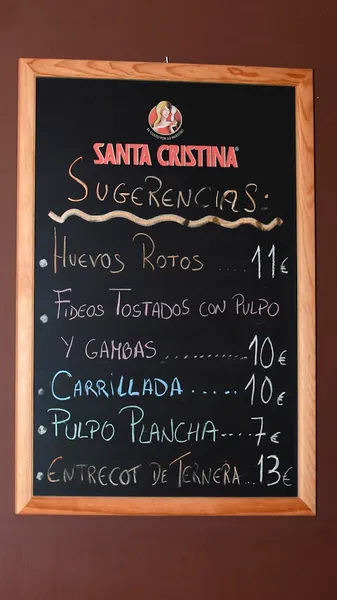 SANTA CRISTINA
SUGERENCIAS:
HUEVOS ROTOS .... 11€
FIDEOS TOSTADOS CON PULPO
Y GAMBAS ........... 10€
CARRILLADA ..... 10€
PULPO PLANCHA .... 7€
ENTRECOT DE TERNERA ... 13€